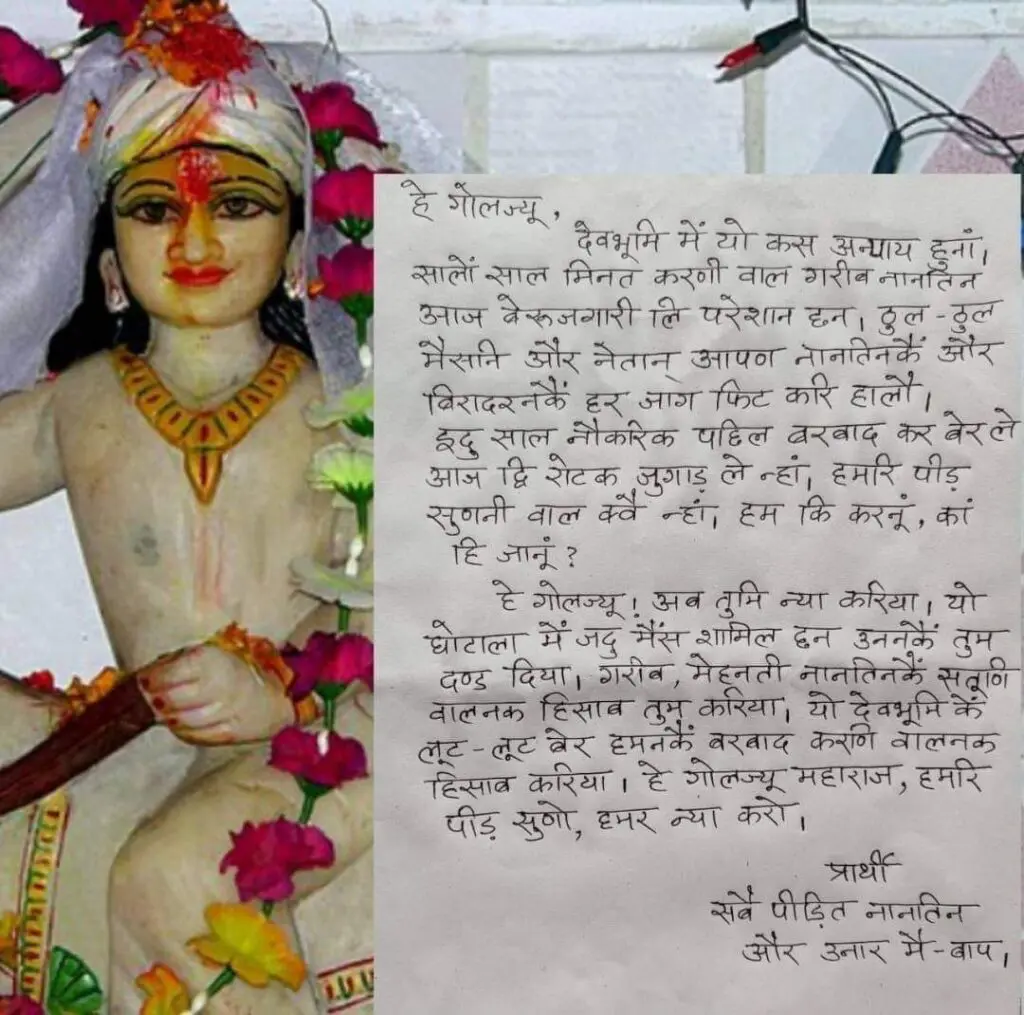 हे गोलज्यू,
देवभूमि में यो कस अन्याय हुनां।
सालों साल मिनत करणी वाल गरीब नानतिन
आज बेरूजगारी लि परेशान छन। ठुल-ठुल
मैसनि और नेतान् आपण नानतिनकैं और
बिरादरनकैं हर जाग फिट करि हालौ।
इदु साल नौकरिक पछिल बरबाद कर बेर ले
आज द्वि रोटक जुगाड़ ले न्हां, हमरि पीड़
सुणनी वाल क्वै न्हां, हम कि करनूं, कां
हि जानूं?
हे गोलज्यू! अब तुमि न्या करिया। यो
घोटाला में जदु मैंस शामिल छन उननकैं तुम
दण्ड दिया। गरीब, मेहनती नानतिनकैं सतूणि
वालनक हिसाब तुम करिया। यो देवभूमि कें
लूट-लूट बेर हमनकैं बरबाद करणि वालनक
हिसाब करिया। हे गोलज्यू महाराज, हमरि
पीड़ सुणो, हमर न्यां करो।
प्रार्थी
सबै पीड़ित नानतिन
और उनार मै-बाप।